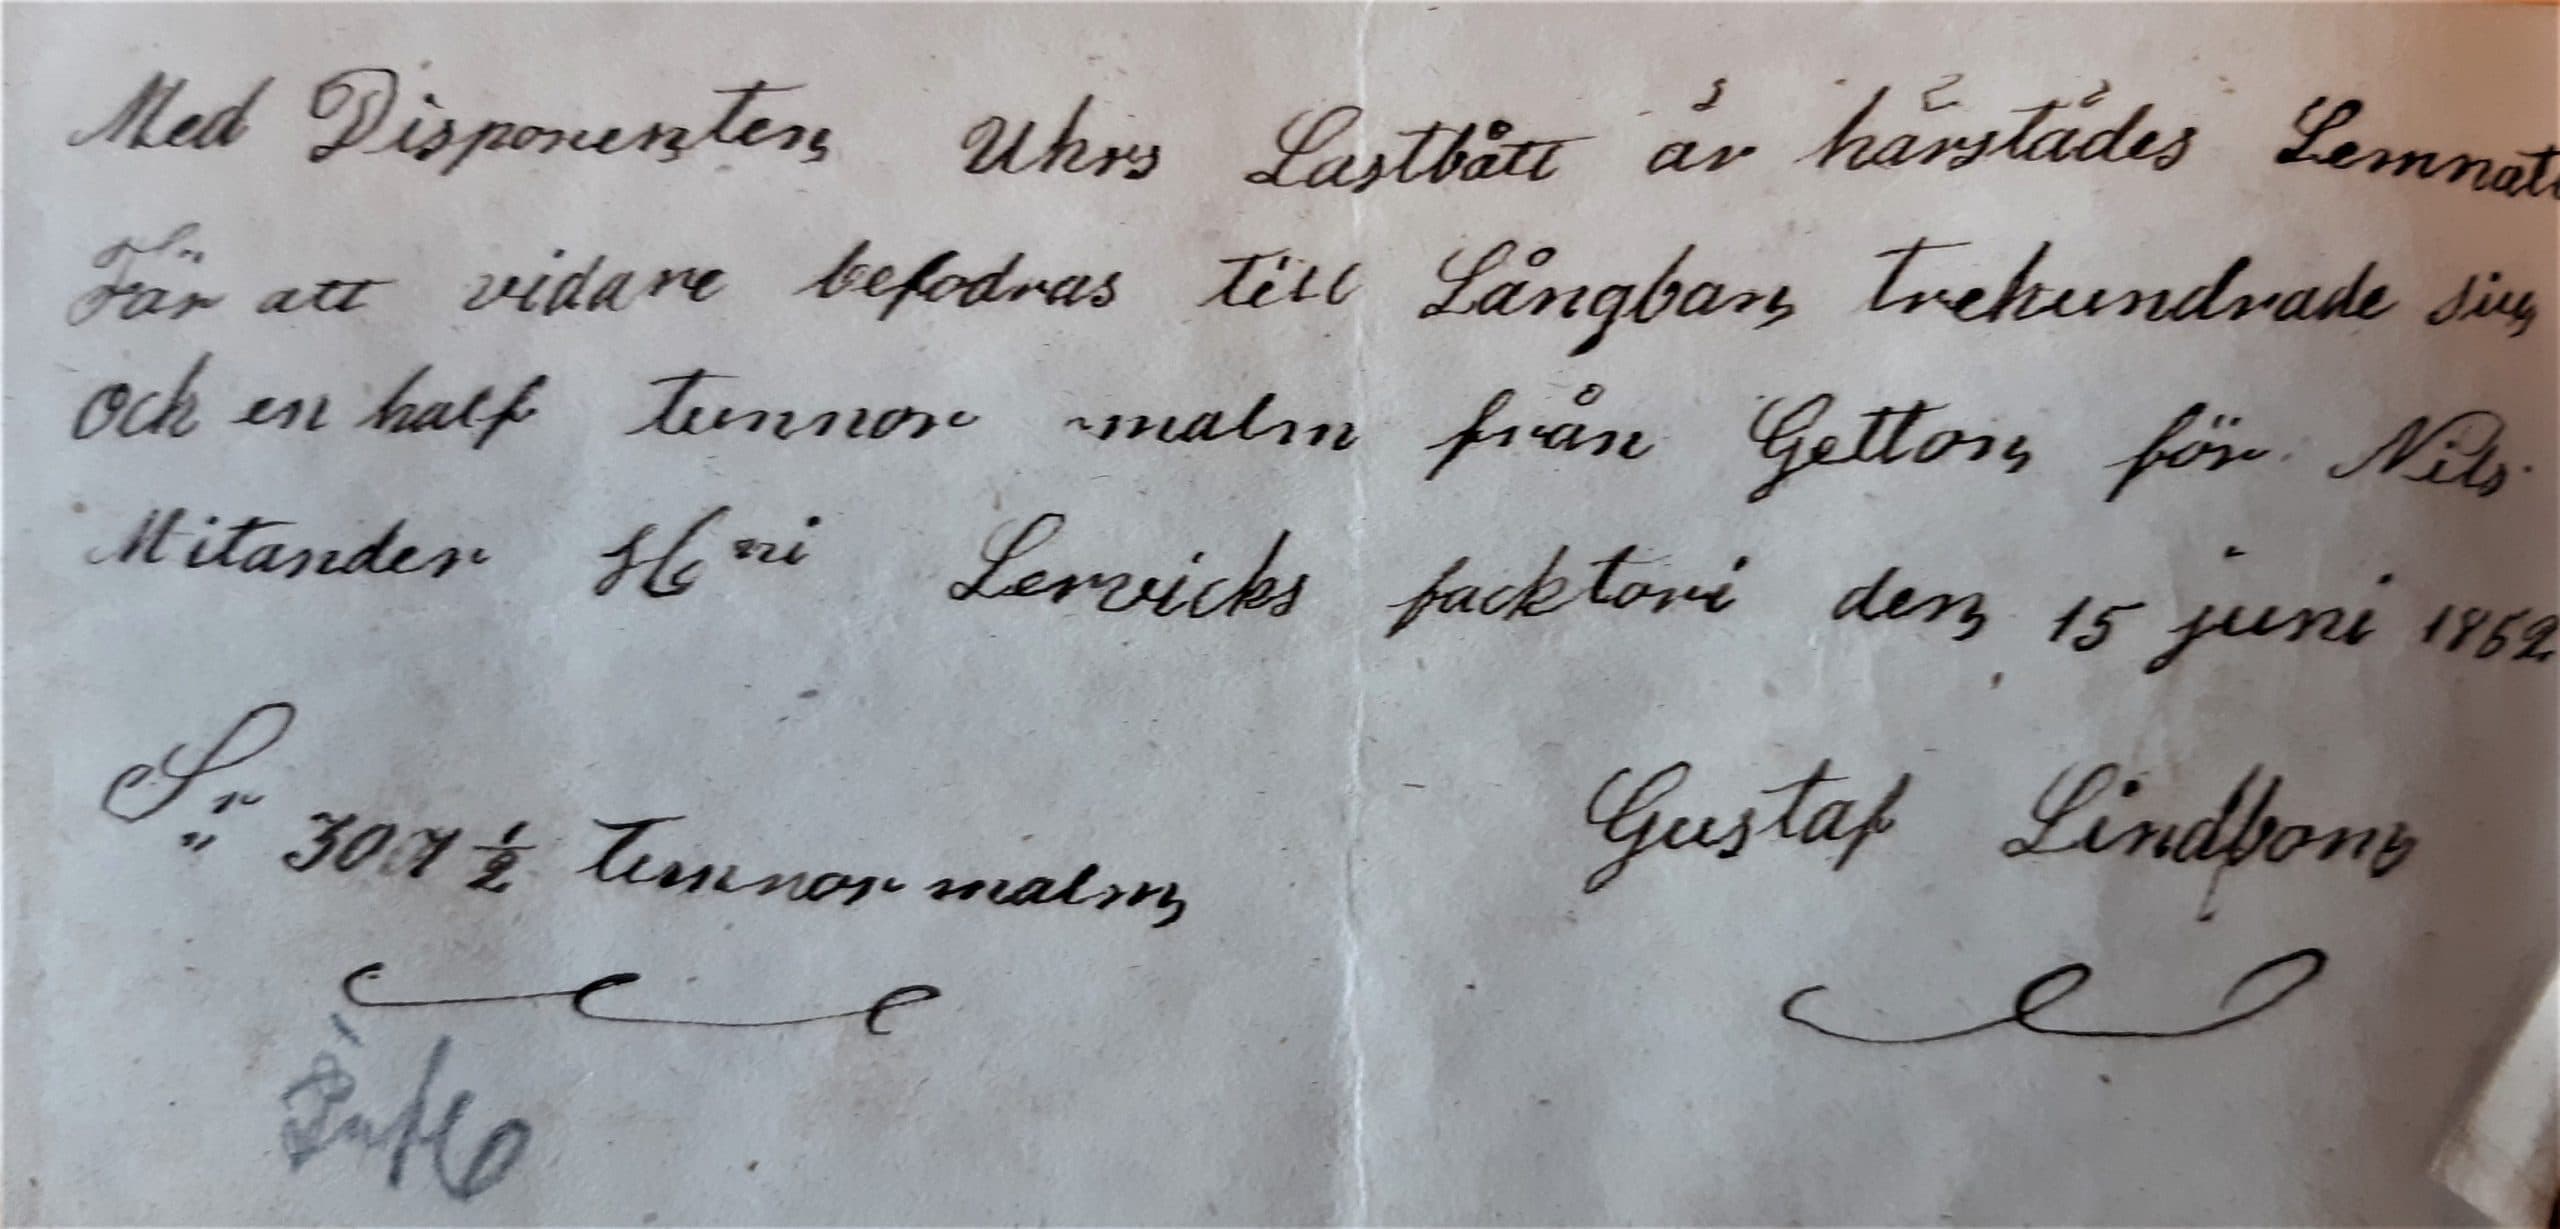 Med Disponenten Uhrs Lastbått är härstädes Lemnatt
För att vidare befodras till Långban trehundrade siu
Och en half tunnor malm från Getton för Nils
Mitander H ni Lervicks facktori den 15 juni 1862
Sr 307 1/2 tunnor malm
Gustaf Lindbom